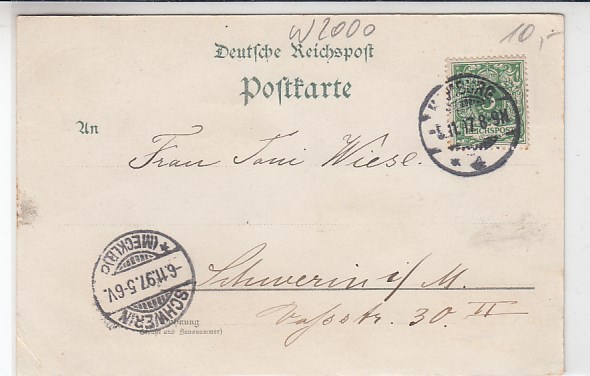 W2000
10,-
Deutsche Reichspost
Postkarte
5
REICHSPOST
5.11.97.8-9N
An
Frau Toni Wiese.
Schwerin i/M.
SCHWERIN
(MECKLB)
-6.11.97.5-6V.
Wohnung
(Straße und Hausnummer)
Voßstr. 30 II